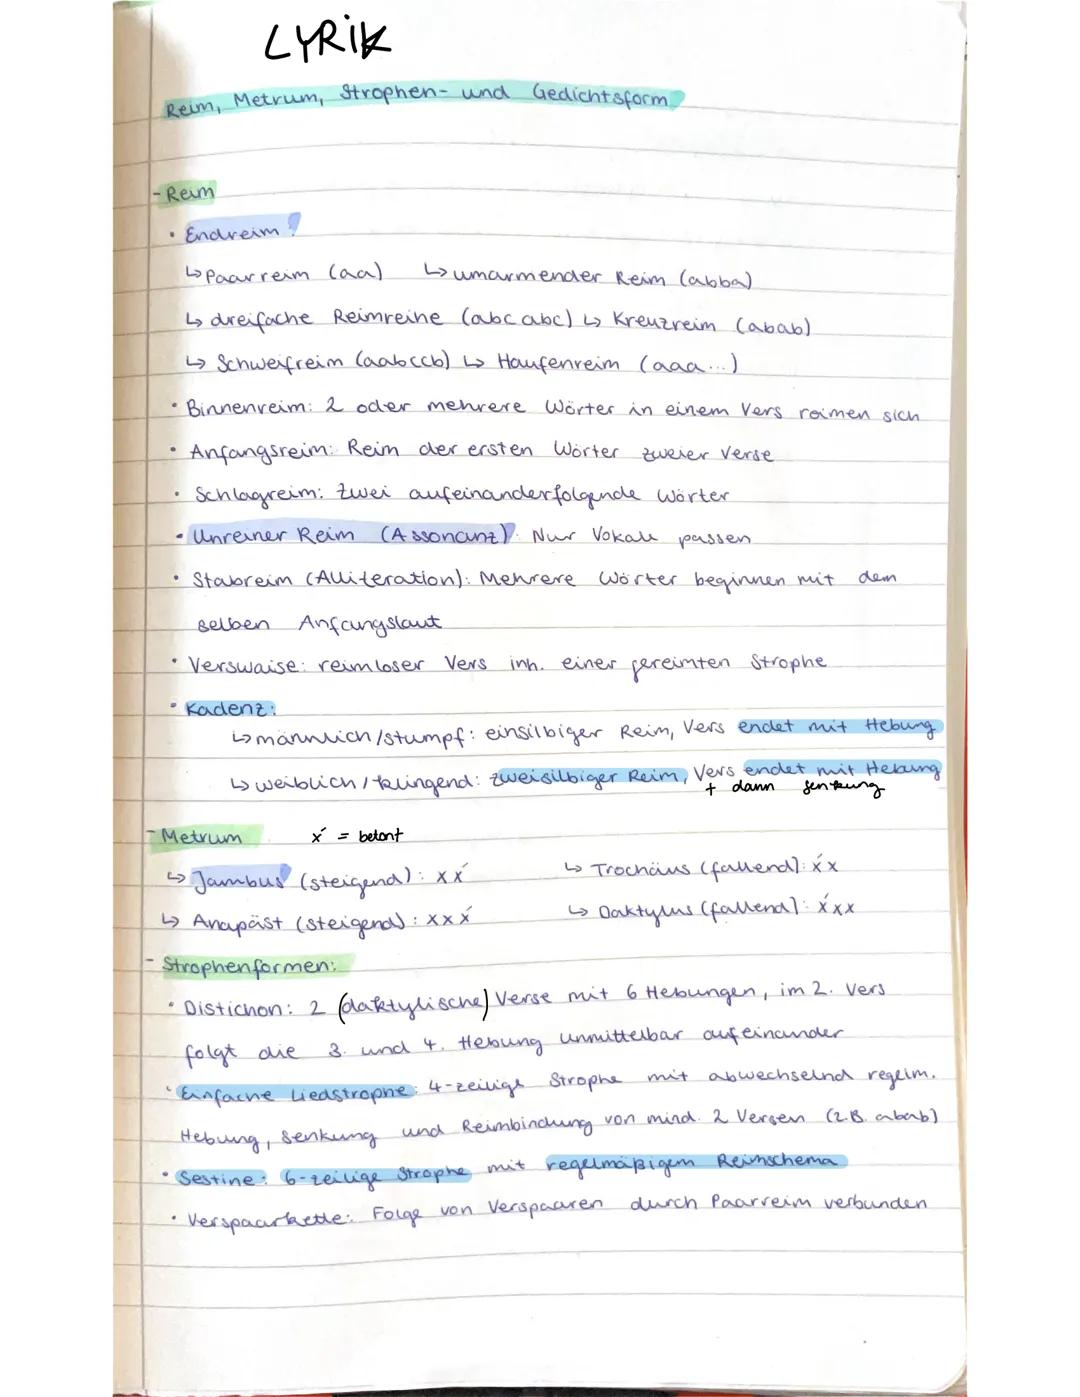 LYRIK
Reim, Metrum, Strophen- und Gedichtsform
- Reim
• Endreim !
↳ Paarreim (aa) ↳ umarmender Reim (abba)
↳ dreifache Reimreihe (abc abc) ↳ Kreuzreim (abab)
↳ Schweifreim (aabccb) ↳ Haufenreim (aaa...)
• Binnenreim: 2 oder mehrere Wörter in einem Vers reimen sich
• Anfangsreim: Reim der ersten Wörter zweier Verse
• Schlagreim: Zwei aufeinanderfolgende Wörter
• Unreiner Reim (Assonanz): Nur Vokale passen
• Stabreim (Alliteration): Mehrere Wörter beginnen mit dem
selben Anfangslaut
• Verswaise: reimloser Vers inh. einer gereimten Strophe
• Kadenz:
↳ männlich/stumpf: einsilbiger Reim, Vers endet mit Hebung
↳ weiblich/klingend: zweisilbiger Reim, Vers endet mit Hebung
+ dann Senkung
- Metrum x́ = betont
↳ Jambus (steigend): x x́ ↳ Trochäus (fallend): x́ x
↳ Anapäst (steigend): x x x́ ↳ Daktylus (fallend): x́ x x
- Strophenformen:
• Distichon: 2 (daktylische) Verse mit 6 Hebungen, im 2. Vers
folgt die 3. und 4. Hebung unmittelbar aufeinander
• Einfache Liedstrophe: 4-zeilige Strophe mit abwechselnd regelm.
Hebung, Senkung und Reimbindung von mind. 2 Versen (z.B. abab)
• Sestine: 6-zeilige Strophe mit regelmäßigem Reimschema
• Verspaarkette: Folge von Verspaaren durch Paarreim verbunden